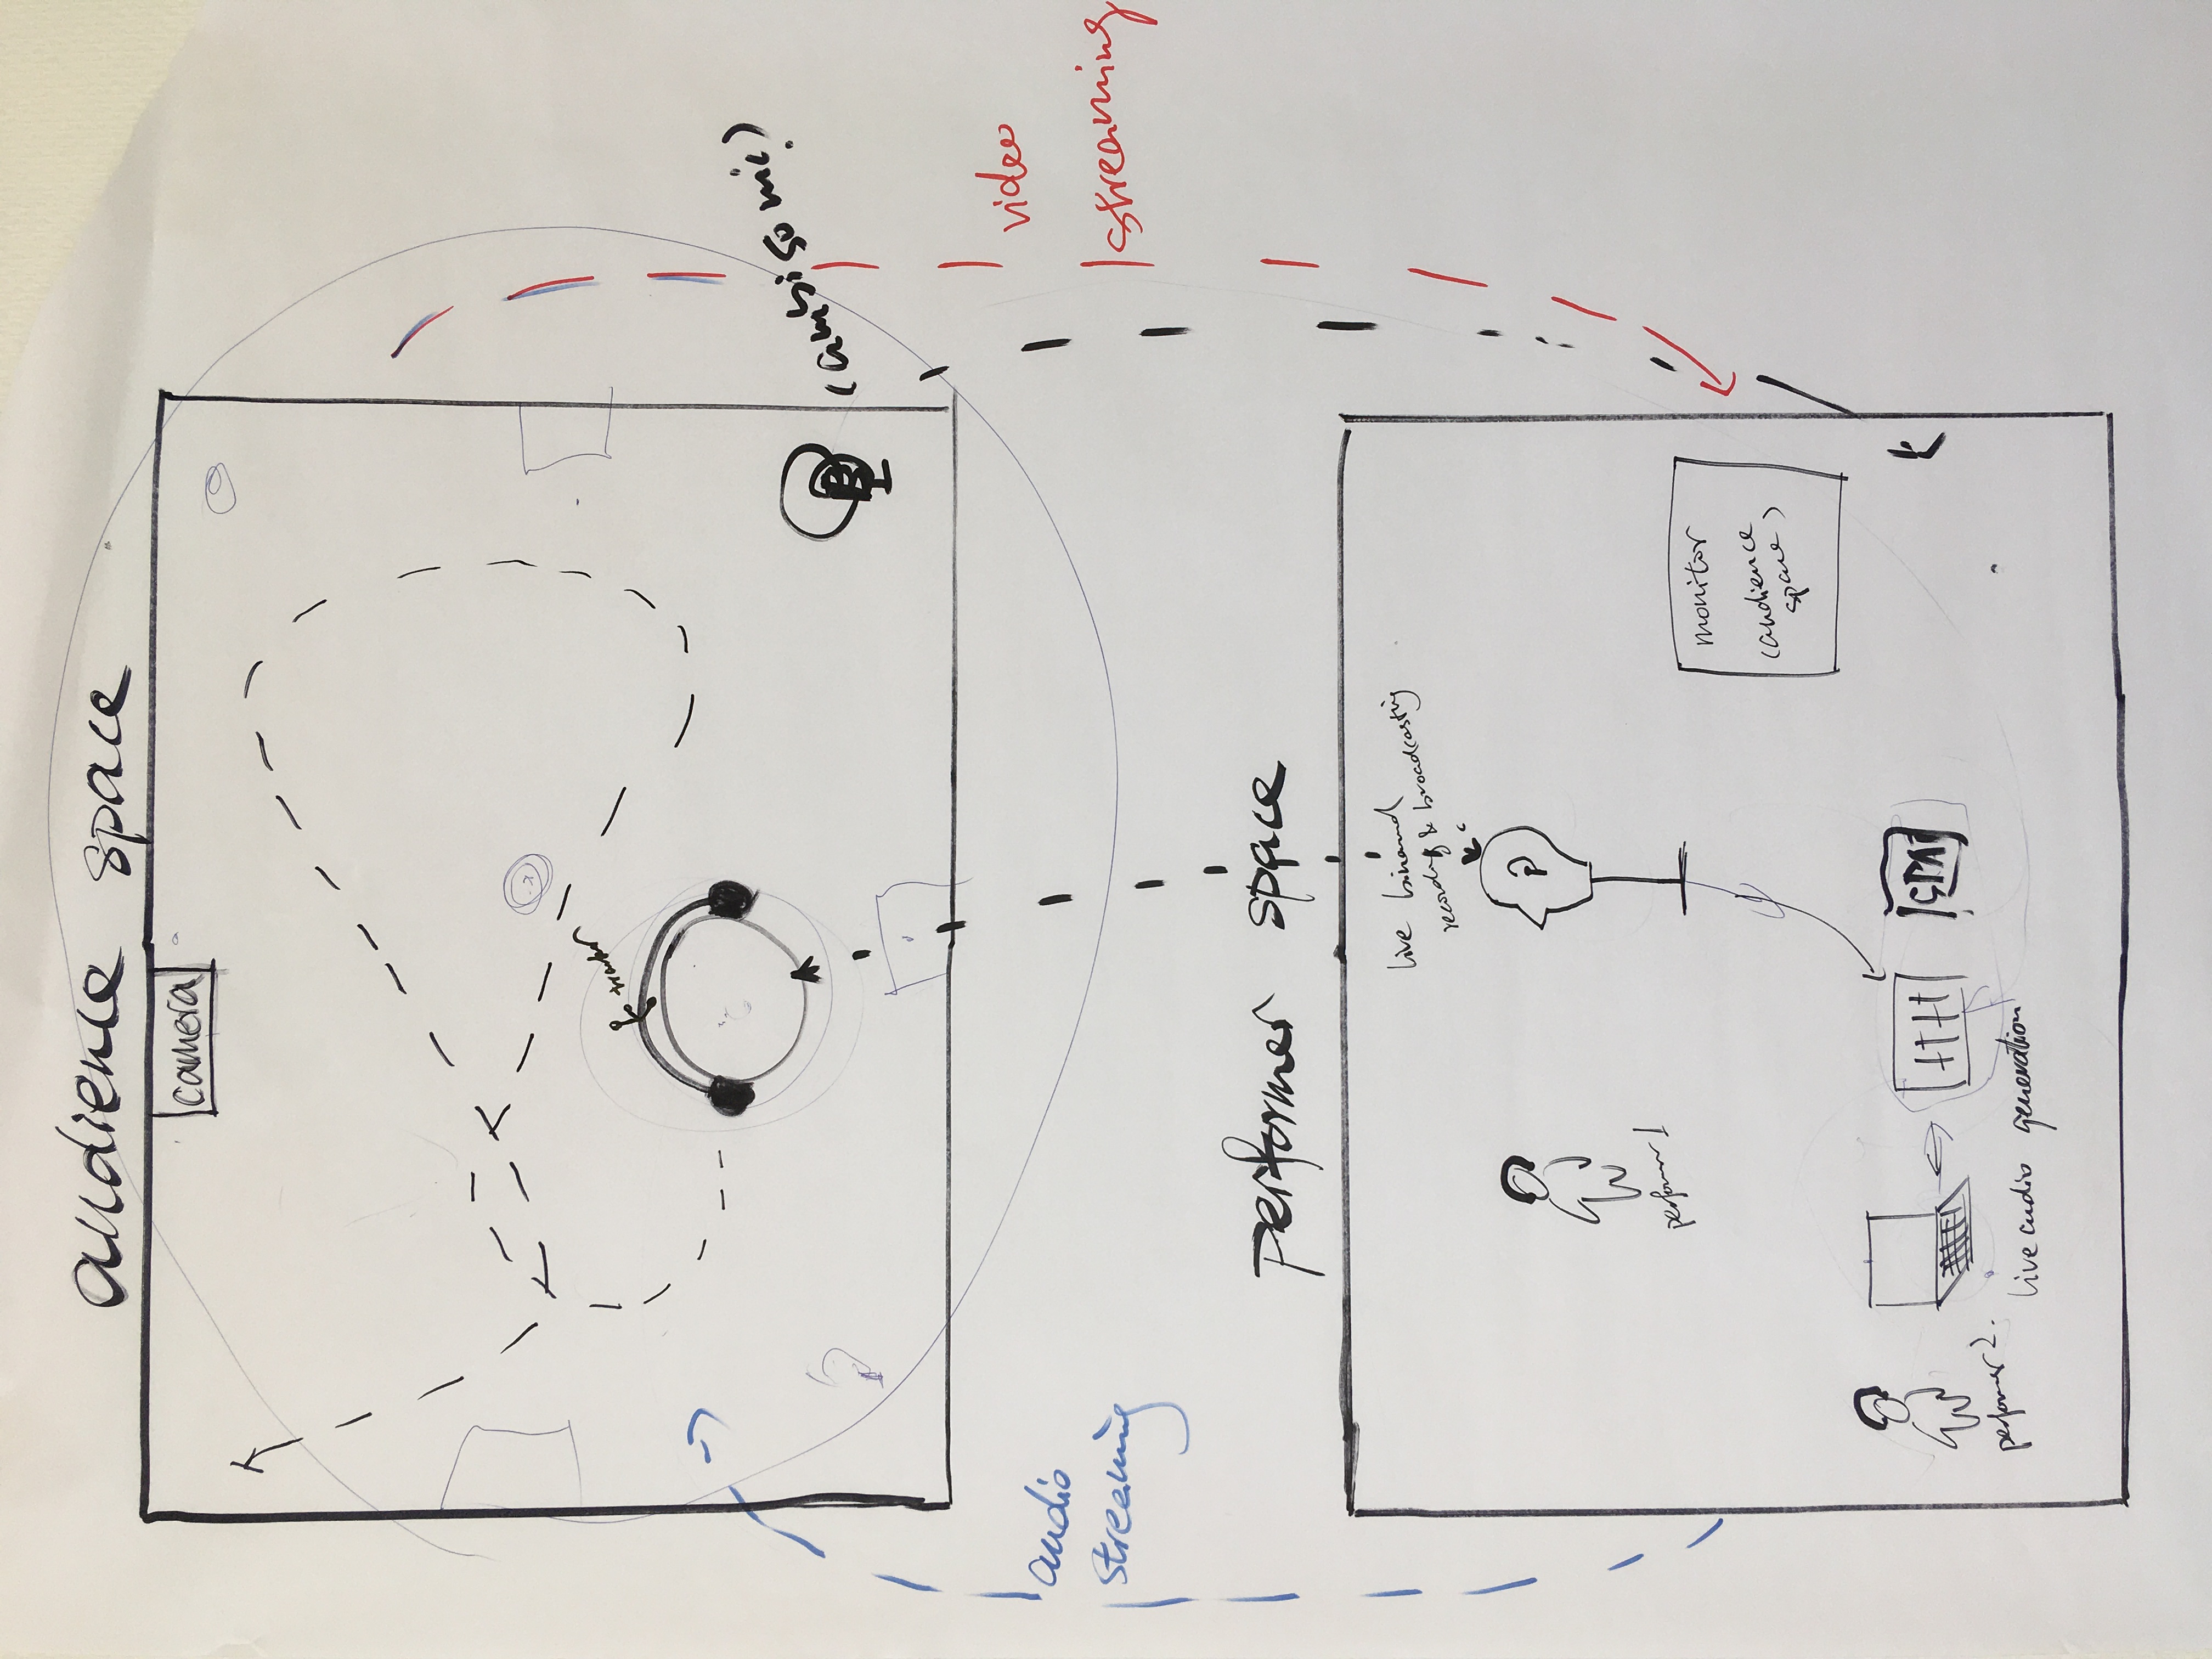 audience space
camera
& tracker
(ambisonic)
audio
streaming
video
streaming
performer space
live binaural
recording & broadcasting
performer 1
monitor
(audience
space)
SPAT
performer 2.
live audio generation